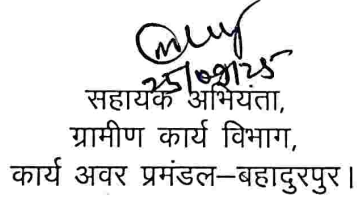 25/09/25
सहायक अभियंता,
ग्रामीण कार्य विभाग,
कार्य अवर प्रमंडल–बहादुरपुर।